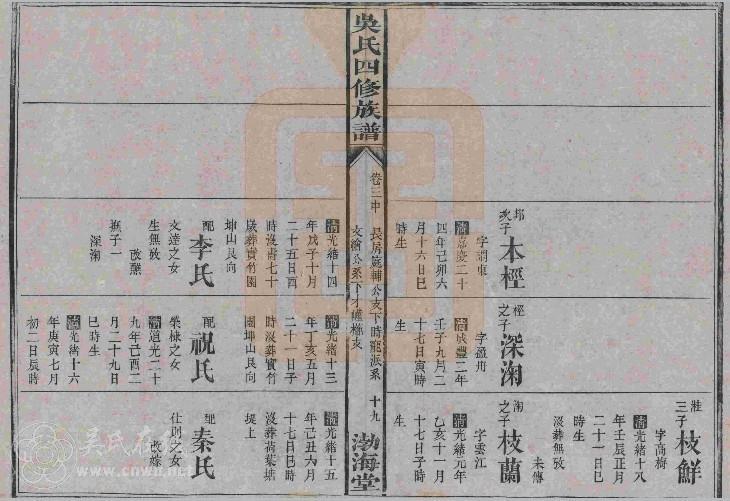 次子
本桱
字調東
清嘉慶二十
四年己卯六
月十六日巳
時生
桱之子
深淘
字盈舟
清咸豐二年
壬子九月二
十七日寅時
生
三子
枝鮮
字高梅
清光緒十八
年壬辰正月
二十一日巳
時生
沒葬無攷
未傳
淘之子
枝蘭
字雲江
清光緒元年
乙亥十一月
十七日子時
生
吳氏四修族譜
卷三中
長房 輔公支下時 派系
文 公系下才 支
十九
渤海堂
清光緒十四
年戊子十月
二十五日酉
時沒壽七十
歲葬實竹園
坤山艮向
配李氏
文達之女
生無攷
改醮
撫子一
深淘
清光緒十三
年丁亥五月
二十一日子
時沒葬實竹
園坤山艮向
配祝氏
榮棣之女
清道光二十
九年己酉二
月二十九日
巳時生
清光緒十六
年庚寅七月
初二日辰時
清光緒十五
年己丑六月
十七日巳時
沒葬荷葉塘
堤上
配秦氏
仕則之女
改醮
吴氏在线
www.cnwu.net